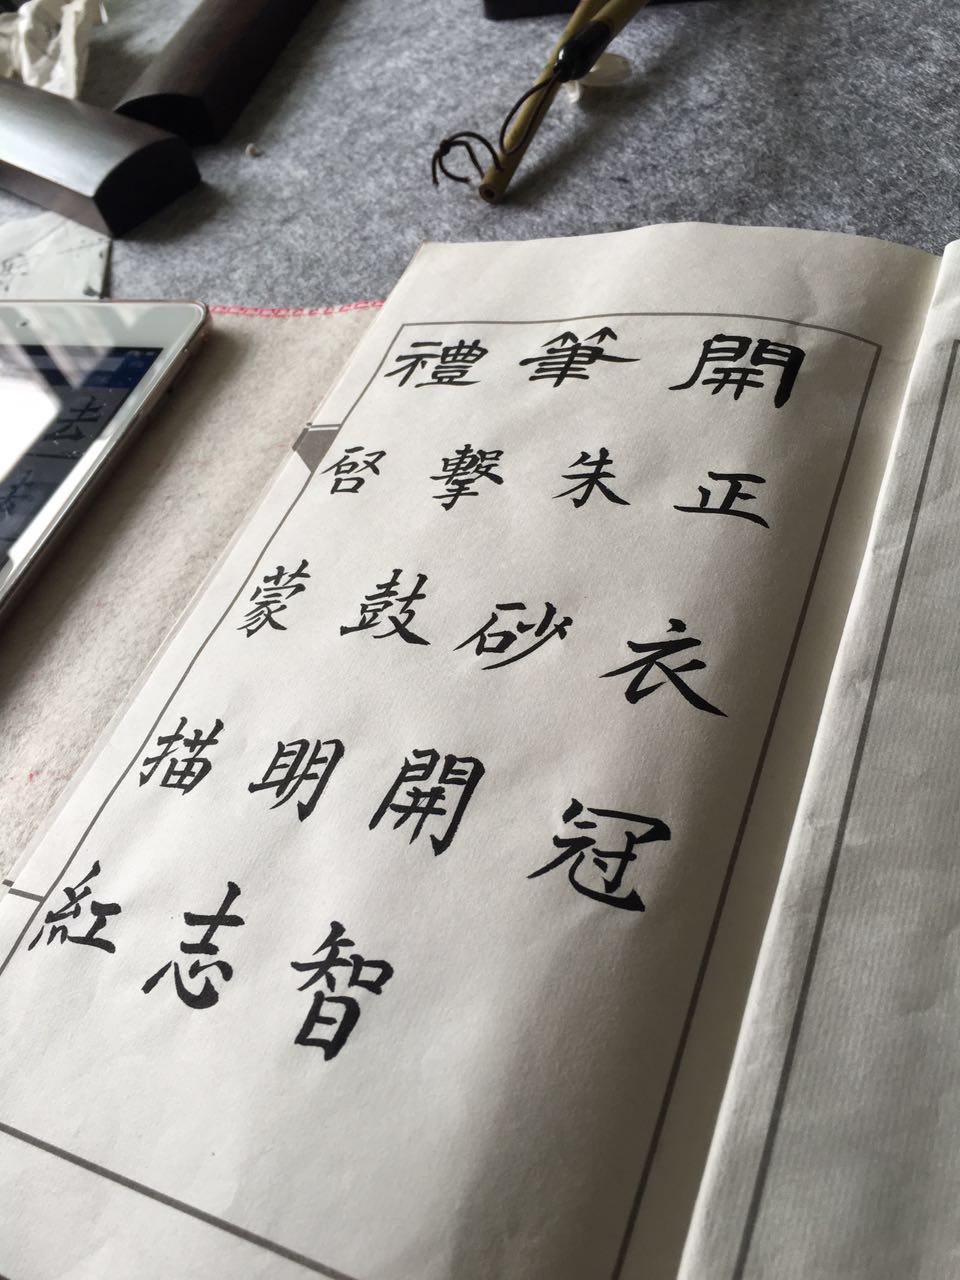 開筆禮
正衣冠
朱砂開智
擊鼓明志
啓蒙描紅
去